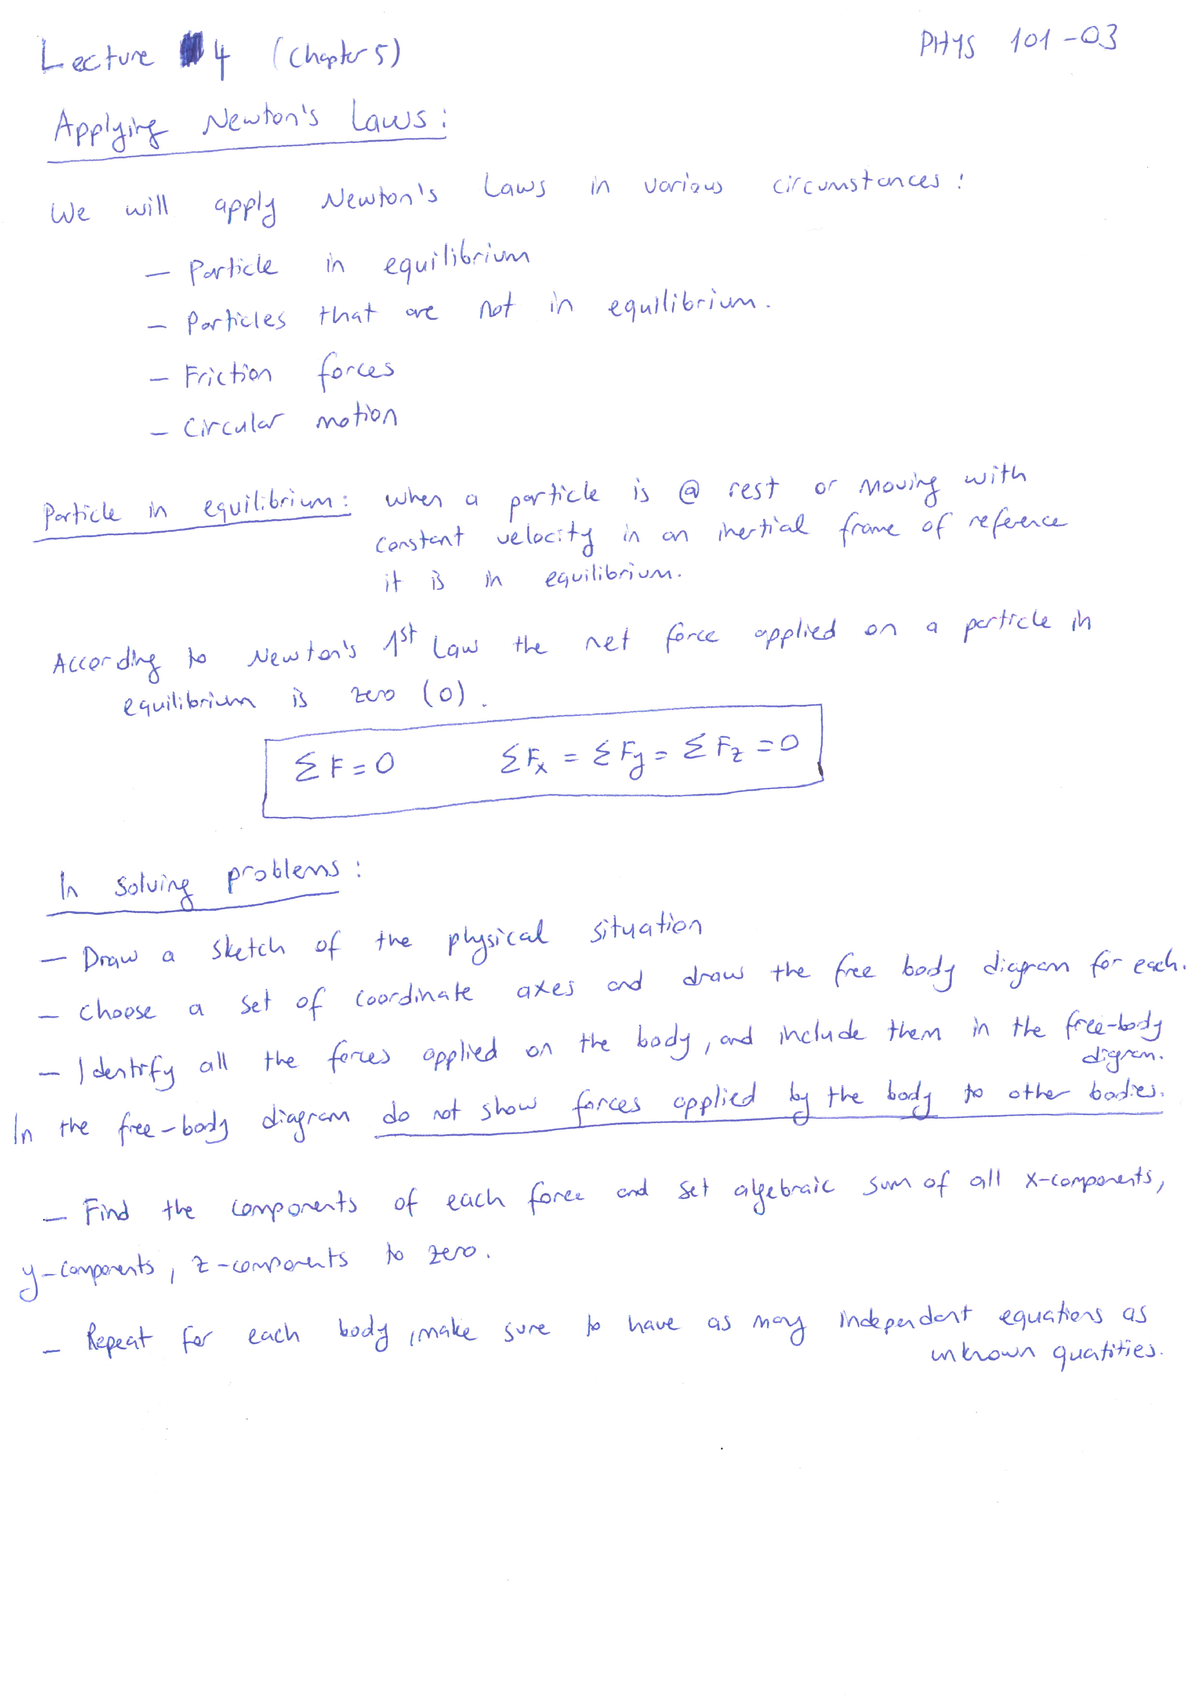 Lecture #4 (Chapter 5)
PHYS 101-03
Applying Newton's Laws:
We will apply Newton's Laws in various circumstances:
- Particle in equilibrium
- Particles that are not in equilibrium.
- Friction forces
- Circular motion
Particle in equilibrium: when a particle is @ rest or moving with
constant velocity in an inertial frame of reference
it is in equilibrium.
According to Newton's 1st Law the net force applied on a particle in
equilibrium is zero (0).
ΣF=0 ΣFx = ΣFy = ΣFz =0
In solving problems:
- Draw a sketch of the physical situation
- Choose a set of coordinate axes and draw the free body diagram for each.
- Identify all the forces applied on the body, and include them in the free-body
digram.
In the free-body diagram do not show forces applied by the body to other bodies.
- Find the components of each force and set algebraic sum of all x-components,
y-components, z-components to zero.
- Repeat for each body, make sure to have as may independent equations as
unknown quatities.